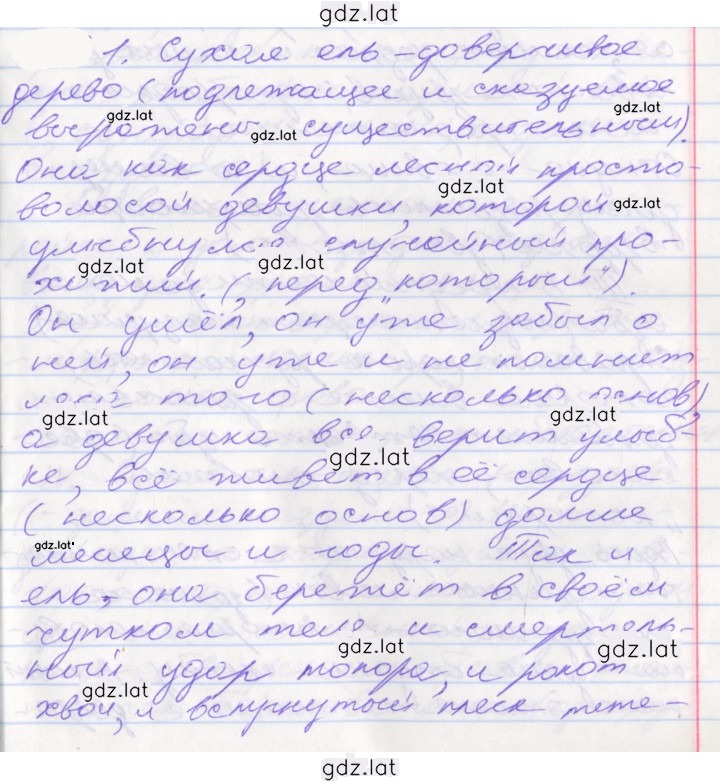 gdz.lat
1. Сухая ель – доверчивое
дерево (подлежащее и сказуемое
gdz.lat gdz.lat
выражены существительными).
gdz.lat
Она как сердце лесной просто-
gdz.lat gdz.lat
волосой девушки, которой
улыбнулся случайный про-
gdz.lat gdz.lat
хожий. ("перед которым").
Он ушёл, он уже забыл о
ней, он уже и не помнит
лица того (несколько основ)
gdz.lat gdz.lat
а девушка всё верит улыб-
gdz.lat
ке, всё живёт в её сердце
(несколько основ) долгие
gdz.lat
месяцы и годы. Так и
ель, она бережёт в своём
чутком теле и смертель-
gdz.lat gdz.lat
ный удар топора, и рокот
gdz.lat
хвои, и вспугнутый плеск тете-
gdz.lat